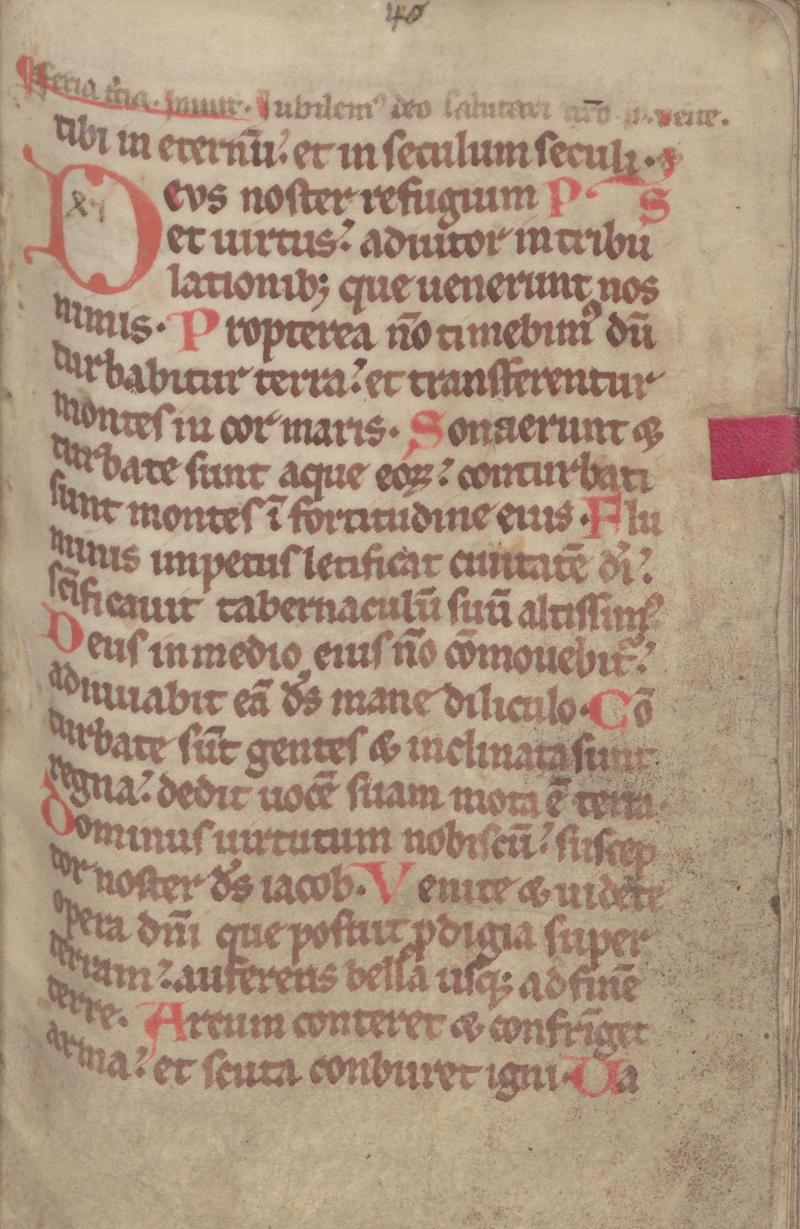 40
feria iiia. Inuit. Iubilemꝰ deo salutari nr̄o. ps. venite.
tibi in eternū: et in seculum seculi.
Deus noster refugium P S
xlv
et uirtus: adiutor in tribu
lationib; que uenerunt nos
nimis. Propterea nō timebimꝰ dū
turbabitur terra: et transferentur
montes in cor maris. Sonaerunt &
turbate sunt aque eoꝝ: conturbati
sunt montes ī fortitudine eius. Flu
minis impetus letificat ciuitatē dī:
scīficauit tabernaculū suū altissimꝰ
Deus in medio eius nō cōmouebit᷑:
adiuuabit eā dṡ mane diliculo. Cō
turbate sūt gentes & inclinata sunt
regna: dedit uocē suam mota ē terra.
Dominus uirtutum nobiscū: suscep
tor noster dṡ iacob. Venite & uidete
opera dm̄i que posuit ꝓdigia super
terram: auferens bella usq; ad finē
terre. Arcum conteret & confrīget
arma: et scuta conburet igni. Ua